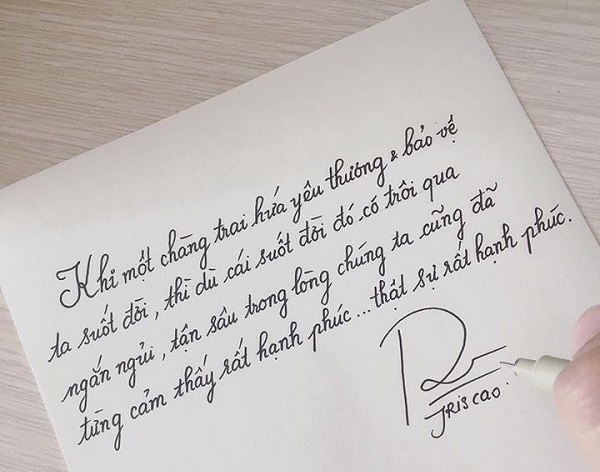 Khi một chàng trai hứa yêu thương & bảo vệ
ta suốt đời, thì dù cái suốt đời đó có trôi qua
ngắn ngủi, tận sâu trong lòng chúng ta cũng đã
từng cảm thấy rất hạnh phúc... thật sự rất hạnh phúc.
JRIS CAO.